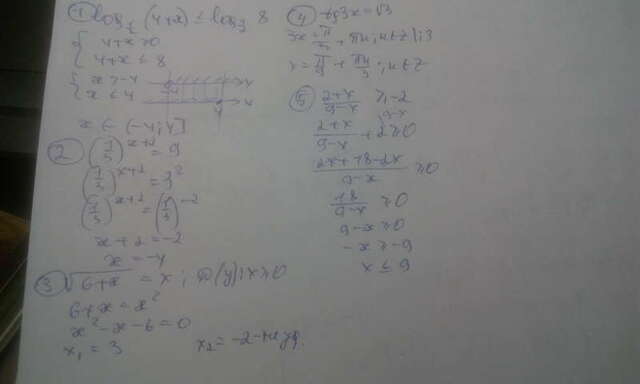 ① log₇ (4+x) ≤ log₇ 8
{ 4+x>0
4+x ≤ 8
{ x > -4
x ≤ 4
-4 x
4 x
x ∈ (-4; 4]
② (1/3)^(x+2) = 9
(1/3)^(x+2) = 3²
(1/3)^(x+2) = (1/3)^(-2)
x+2 = -2
x = -4
③ √(6+x) = x ; D(y): x ≥ 0
6+x = x²
x² - x - 6 = 0
x₁ = 3 x₂ = -2 - не уд.
④ tg3x = √3
3x = π/3 + πn, n∈Z |:3
x = π/9 + πn/3, n∈Z
⑤ (2+x)/(9-x) ≥ -2
(2+x)/(9-x) + 2 ≥ 0
(2x+18-2x)/(9-x) ≥ 0
18/(9-x) ≥ 0
9-x ≥ 0
-x ≥ -9
x ≤ 9